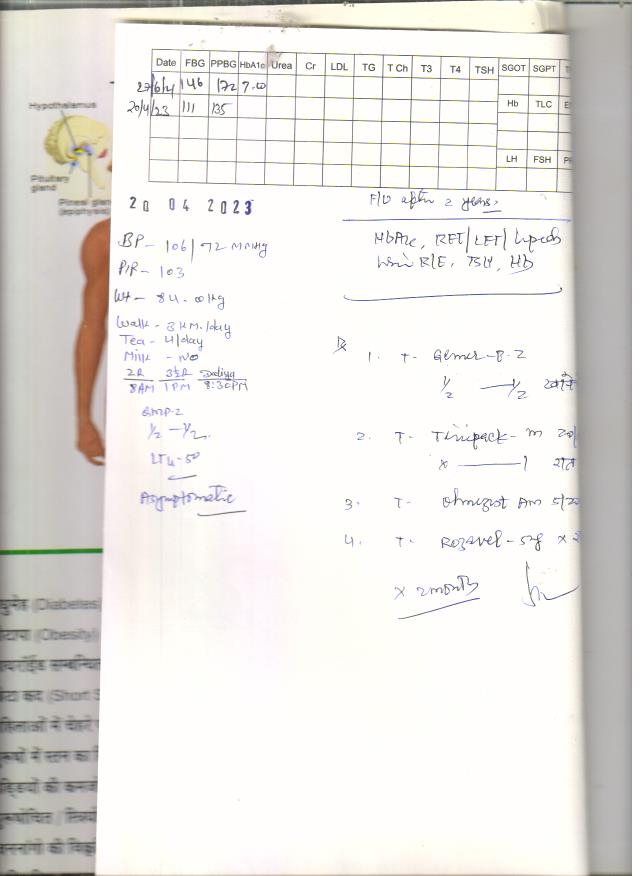 Date FBG PPBG HbA1c Urea Cr LDL TG T Ch T3 T4 TSH SGOT SGPT
27/6/21 146 172 7.00
Hb TLC
20/4/23 111 135
LH FSH
Hypothalamus
Pituitary
gland
Pineal gland
(epiphysis)
20 04 2023
F/U after 2 years.
BP - 106/72 mmHg
P/R - 103
Wt - 84.00 Kg
HbA1c, RFT/LFT/Lipids
R/E, TSH, Hb
Walk - 3 KM./day
Tea - 4/day
Milk - No
2R 3½R Daliya
8AM 1PM 8:30PM
GMP-2
½ - ½
LT4-50
Asymptomatic
Rx
1. T- Gemer-P-2
½ — ½
2. T- Tenepack-M 20/
x — 1 रात
3. T- Olmezest AM 5/20
4. T- Rozavel-5mg x
x 2 months
(Diabetes)
मोटापा (Obesity)
थायरॉईड सम्बन्धित
कद (Short S
महिलाओं में चेहरे
पुरूषों में स्तन का
हड्डियों की कमजो